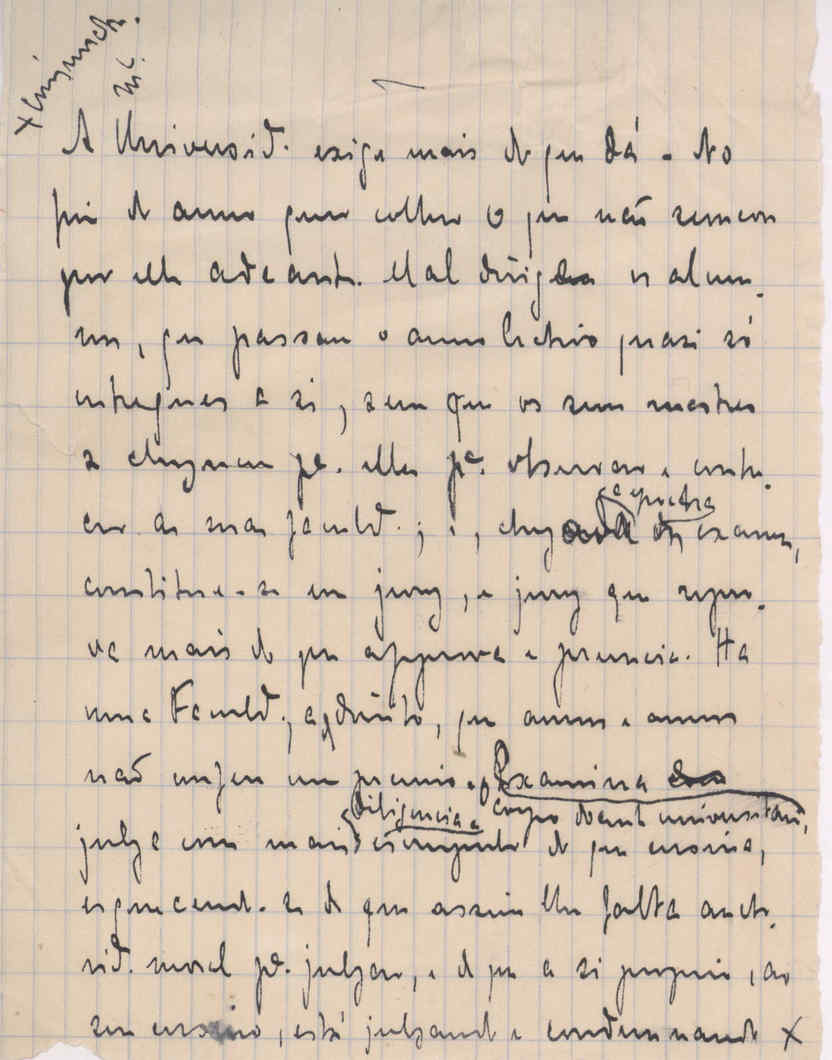 A Universid. exige mais do que dá. No
fim do anno quer colher o que não semeou
por elle adeante. Mal dirige os alum-
nos, que passam o anno lectivo quasi só
entregues a si, sem que os seus mestres
se cheguem pa. elles pa. observar e conhe-
cer as suas faculd.; e, chegada a epocha
dos exames,
constitue-se em jury, e jury que repro-
va mais do que approva e premeia. Ha
uma Faculd., a de direito, que annos e annos
não confere um premio. Examina
corpo docente universitario,
diligencia e
julga com mais escrupulo do que ensina,
esquecendo-se de que assim lhe falta aucto-
rid. moral pa. julgar, e de que a si proprio, ao
seu ensino, está julgando e condemnando X